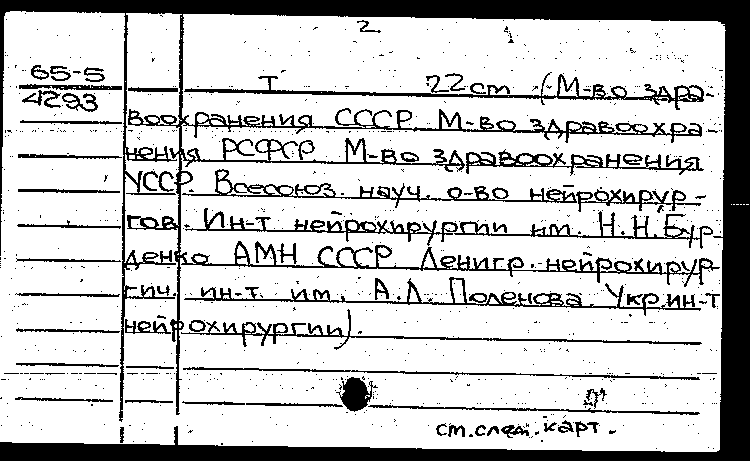 2.
65-5 т 22cm (М-во здра-
4293
воохранения СССР. М-во здравоохра-
нения РСФСР. М-во здравоохранения
УССР. Всесоюз. науч. о-во нейрохирур-
гов. Ин-т нейрохирургии им. Н.Н.Бур-
денко АМН СССР. Ленигр. нейрохирур-
гич. ин-т. им. А.Л. Поленова. Укр.ин-т
нейрохирургии).
см.след. карт.